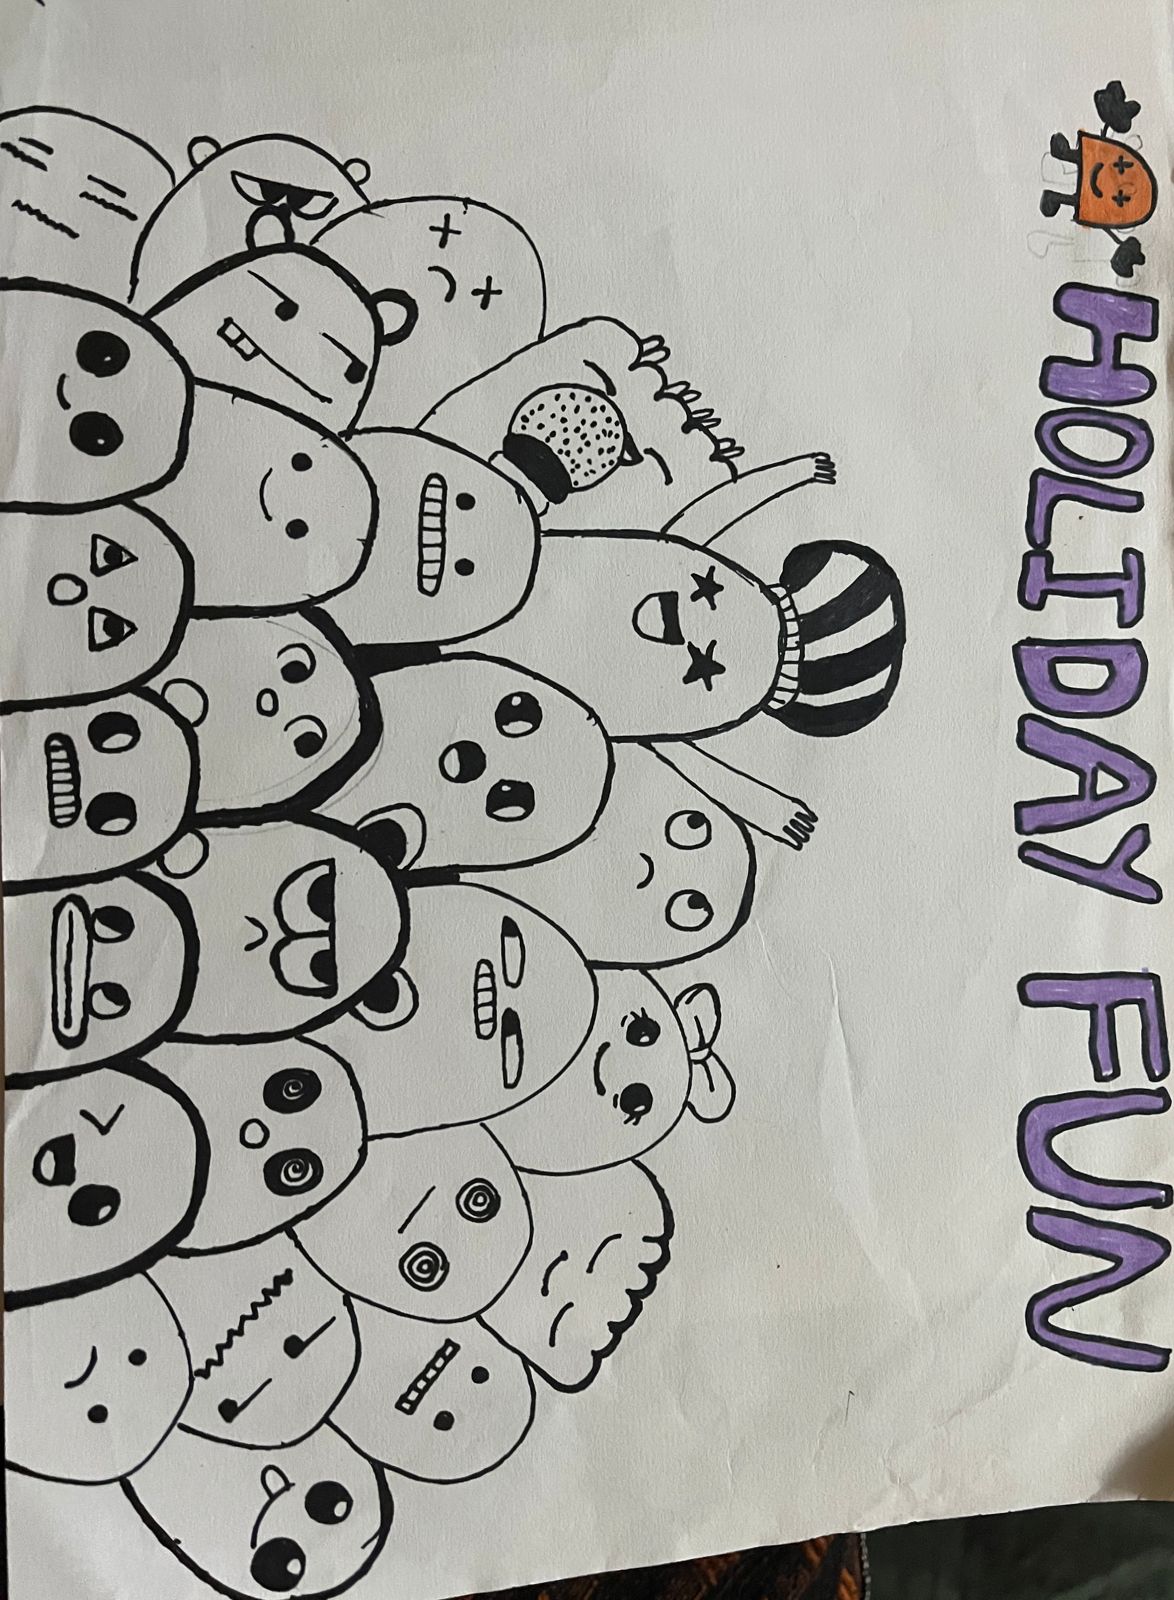 HOLIDAY FUN